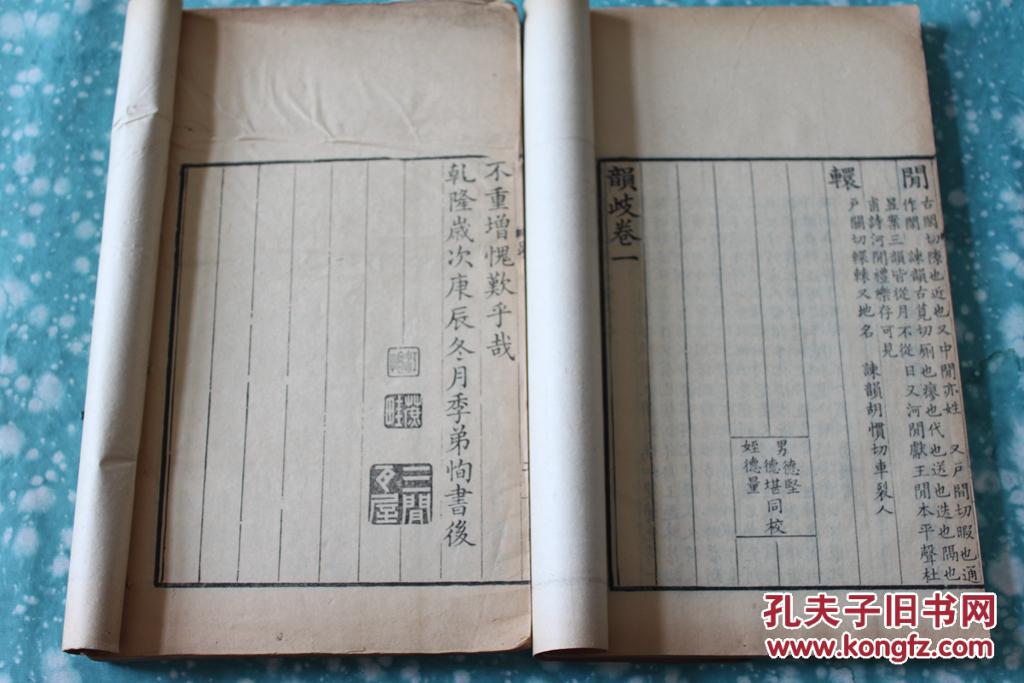 不重增愧歎乎哉
乹隆歲次庚辰冬月季弟恂書後
蔗畦
三閒瓦屋
閒 古閑切隙也近也又中閒亦姓 又戶閒切暇也通
作閑 諫韻古莧切厠也瘳也代也送也迭也隔也
昱案三韻皆從月不從日又河閒獻王閒本平聲杜
甫詩河閒禮樂存可見
轘 戶關切轘轅又地名 諫韻胡慣切車裂人
男德堅
德堪同校
姪德量
韻歧卷一
孔夫子旧书网
www.kongfz.com